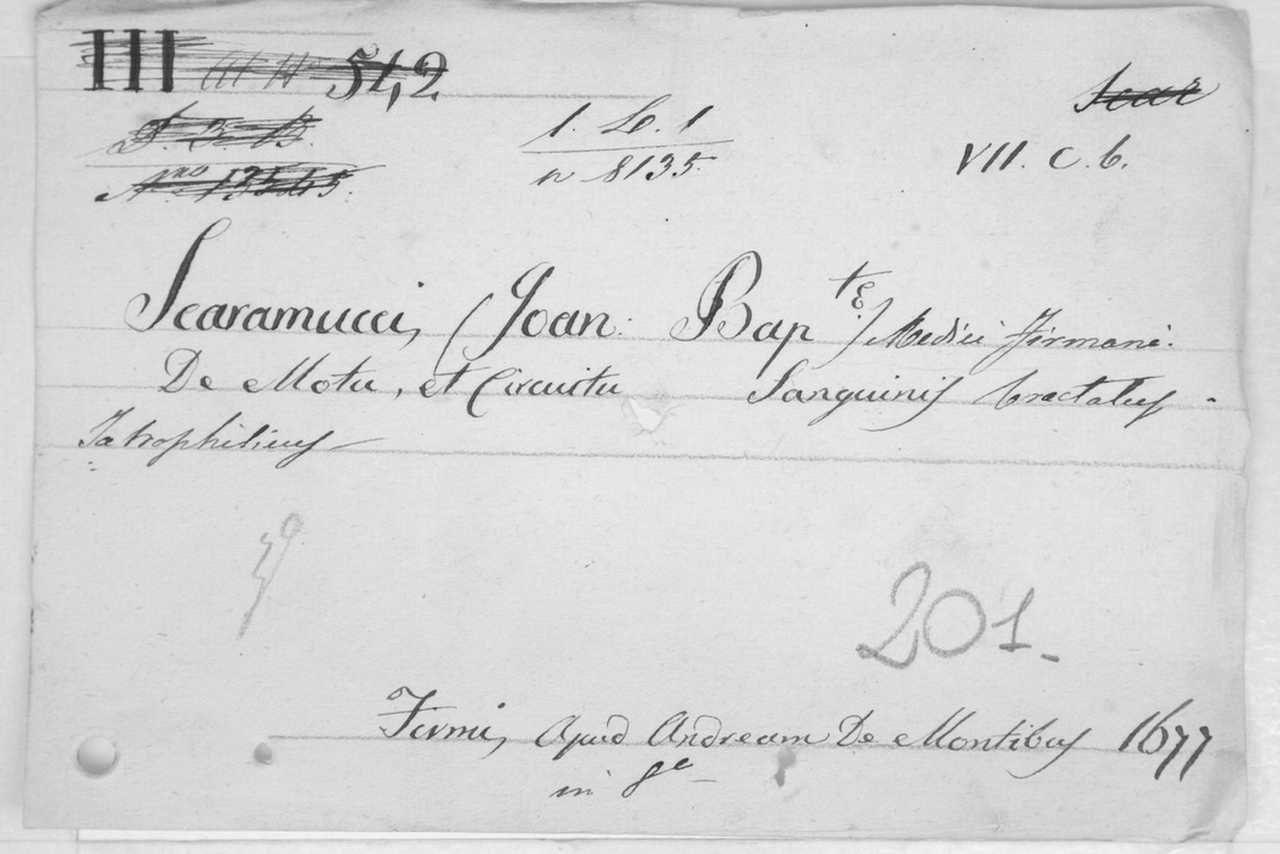 III 542
Scar
P. 3 B.
1. L. 1
VII. C. 6.
Nro 13545.
n 8135.
Scaramucci, (Joan: Bapte.) Medici Firmani.
De Motu, et Circuitu Sanguinis tractatus
Jatrophilicus
201.
Firmi, Apud Andream De Montibus 1677
in 8e